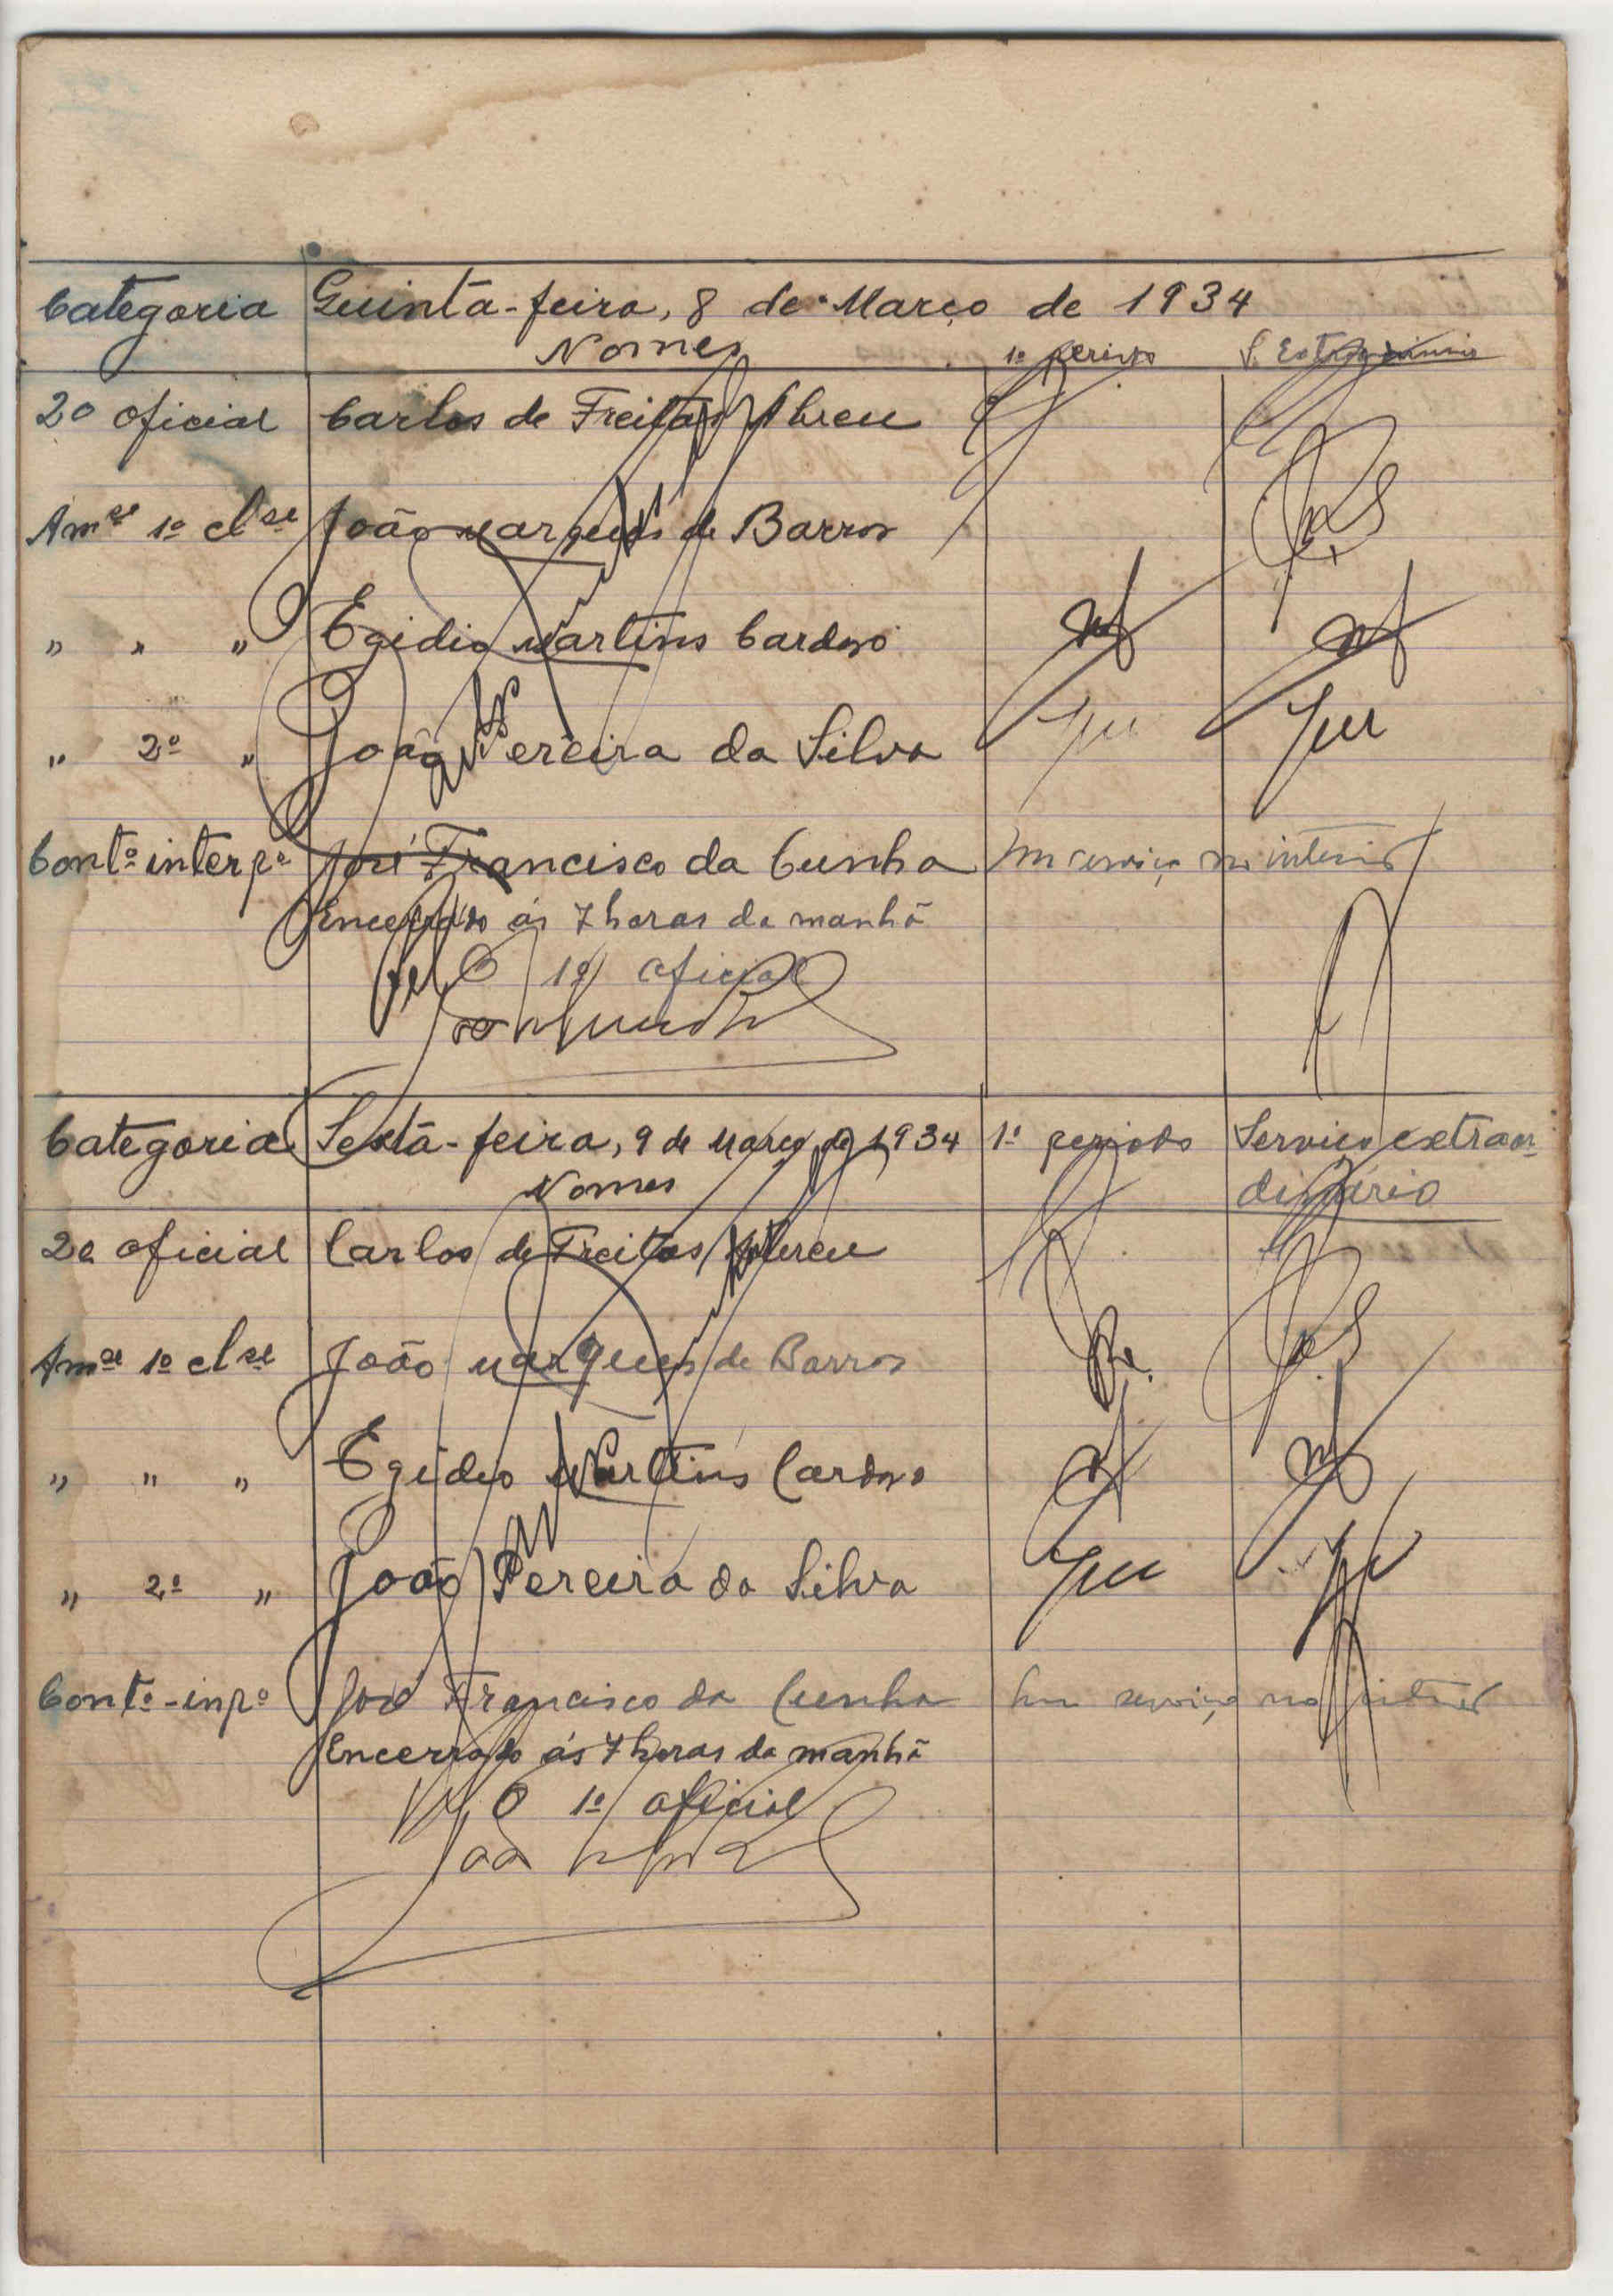 Categoria Quinta-feira, 8 de Março de 1934
Nomes 1º periodo S. Extraordinario
2º oficial Carlos de Freitas Abreu
Amse 1ª clse João Marques de Barros
" " " Egidio Martins Cardoso
" 2ª " João Pereira da Silva
Conto interpe José Francisco da Cunha Em serviço no interior
Encerrado ás 7 horas da manhã
O 1º oficial
Categoria Sexta-feira, 9 de Março de 1934 1º periodo Serviço extraor
Nomes dinário
2º oficial Carlos de Freitas Abreu
Amse 1ª clse João Marques de Barros
" " " Egideo Martins Cardoso
" 2ª " João Pereira da Silva
Conto-inpe José Francisco da Cunha Em serviço no interior
Encerrado ás 7 horas da manhã
O 1º oficial